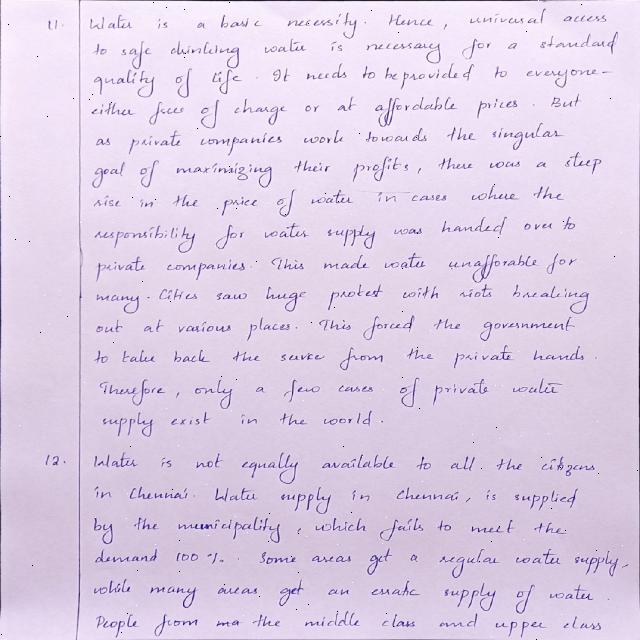 11. Water is a basic necessity. Hence, universal access
to safe drinking water is necessary for a standard
quality of life. It needs to be provided to everyone-
either free of charge or at affordable prices. But
as private companies work towards the singular
goal of maximizing their profits, there was a steep
rise in the price of water in cases where the
responsibility for water supply was handed over to
private companies. This made water unafforable for
many. Cities saw huge protest with riots breaking
out at various places. This forced the government
to take back the servce from the private hands.
Therefore, only a few cases of private water
supply exist in the world.
12. Water is not equally available to all the citizens
in Chennai. Water supply in Chennai, is supplied
by the municipality, which fails to meet the
demand 100 %. Some areas get a regular water supply,
while many areas get an erratic supply of water.
People from ma the middle class and upper class